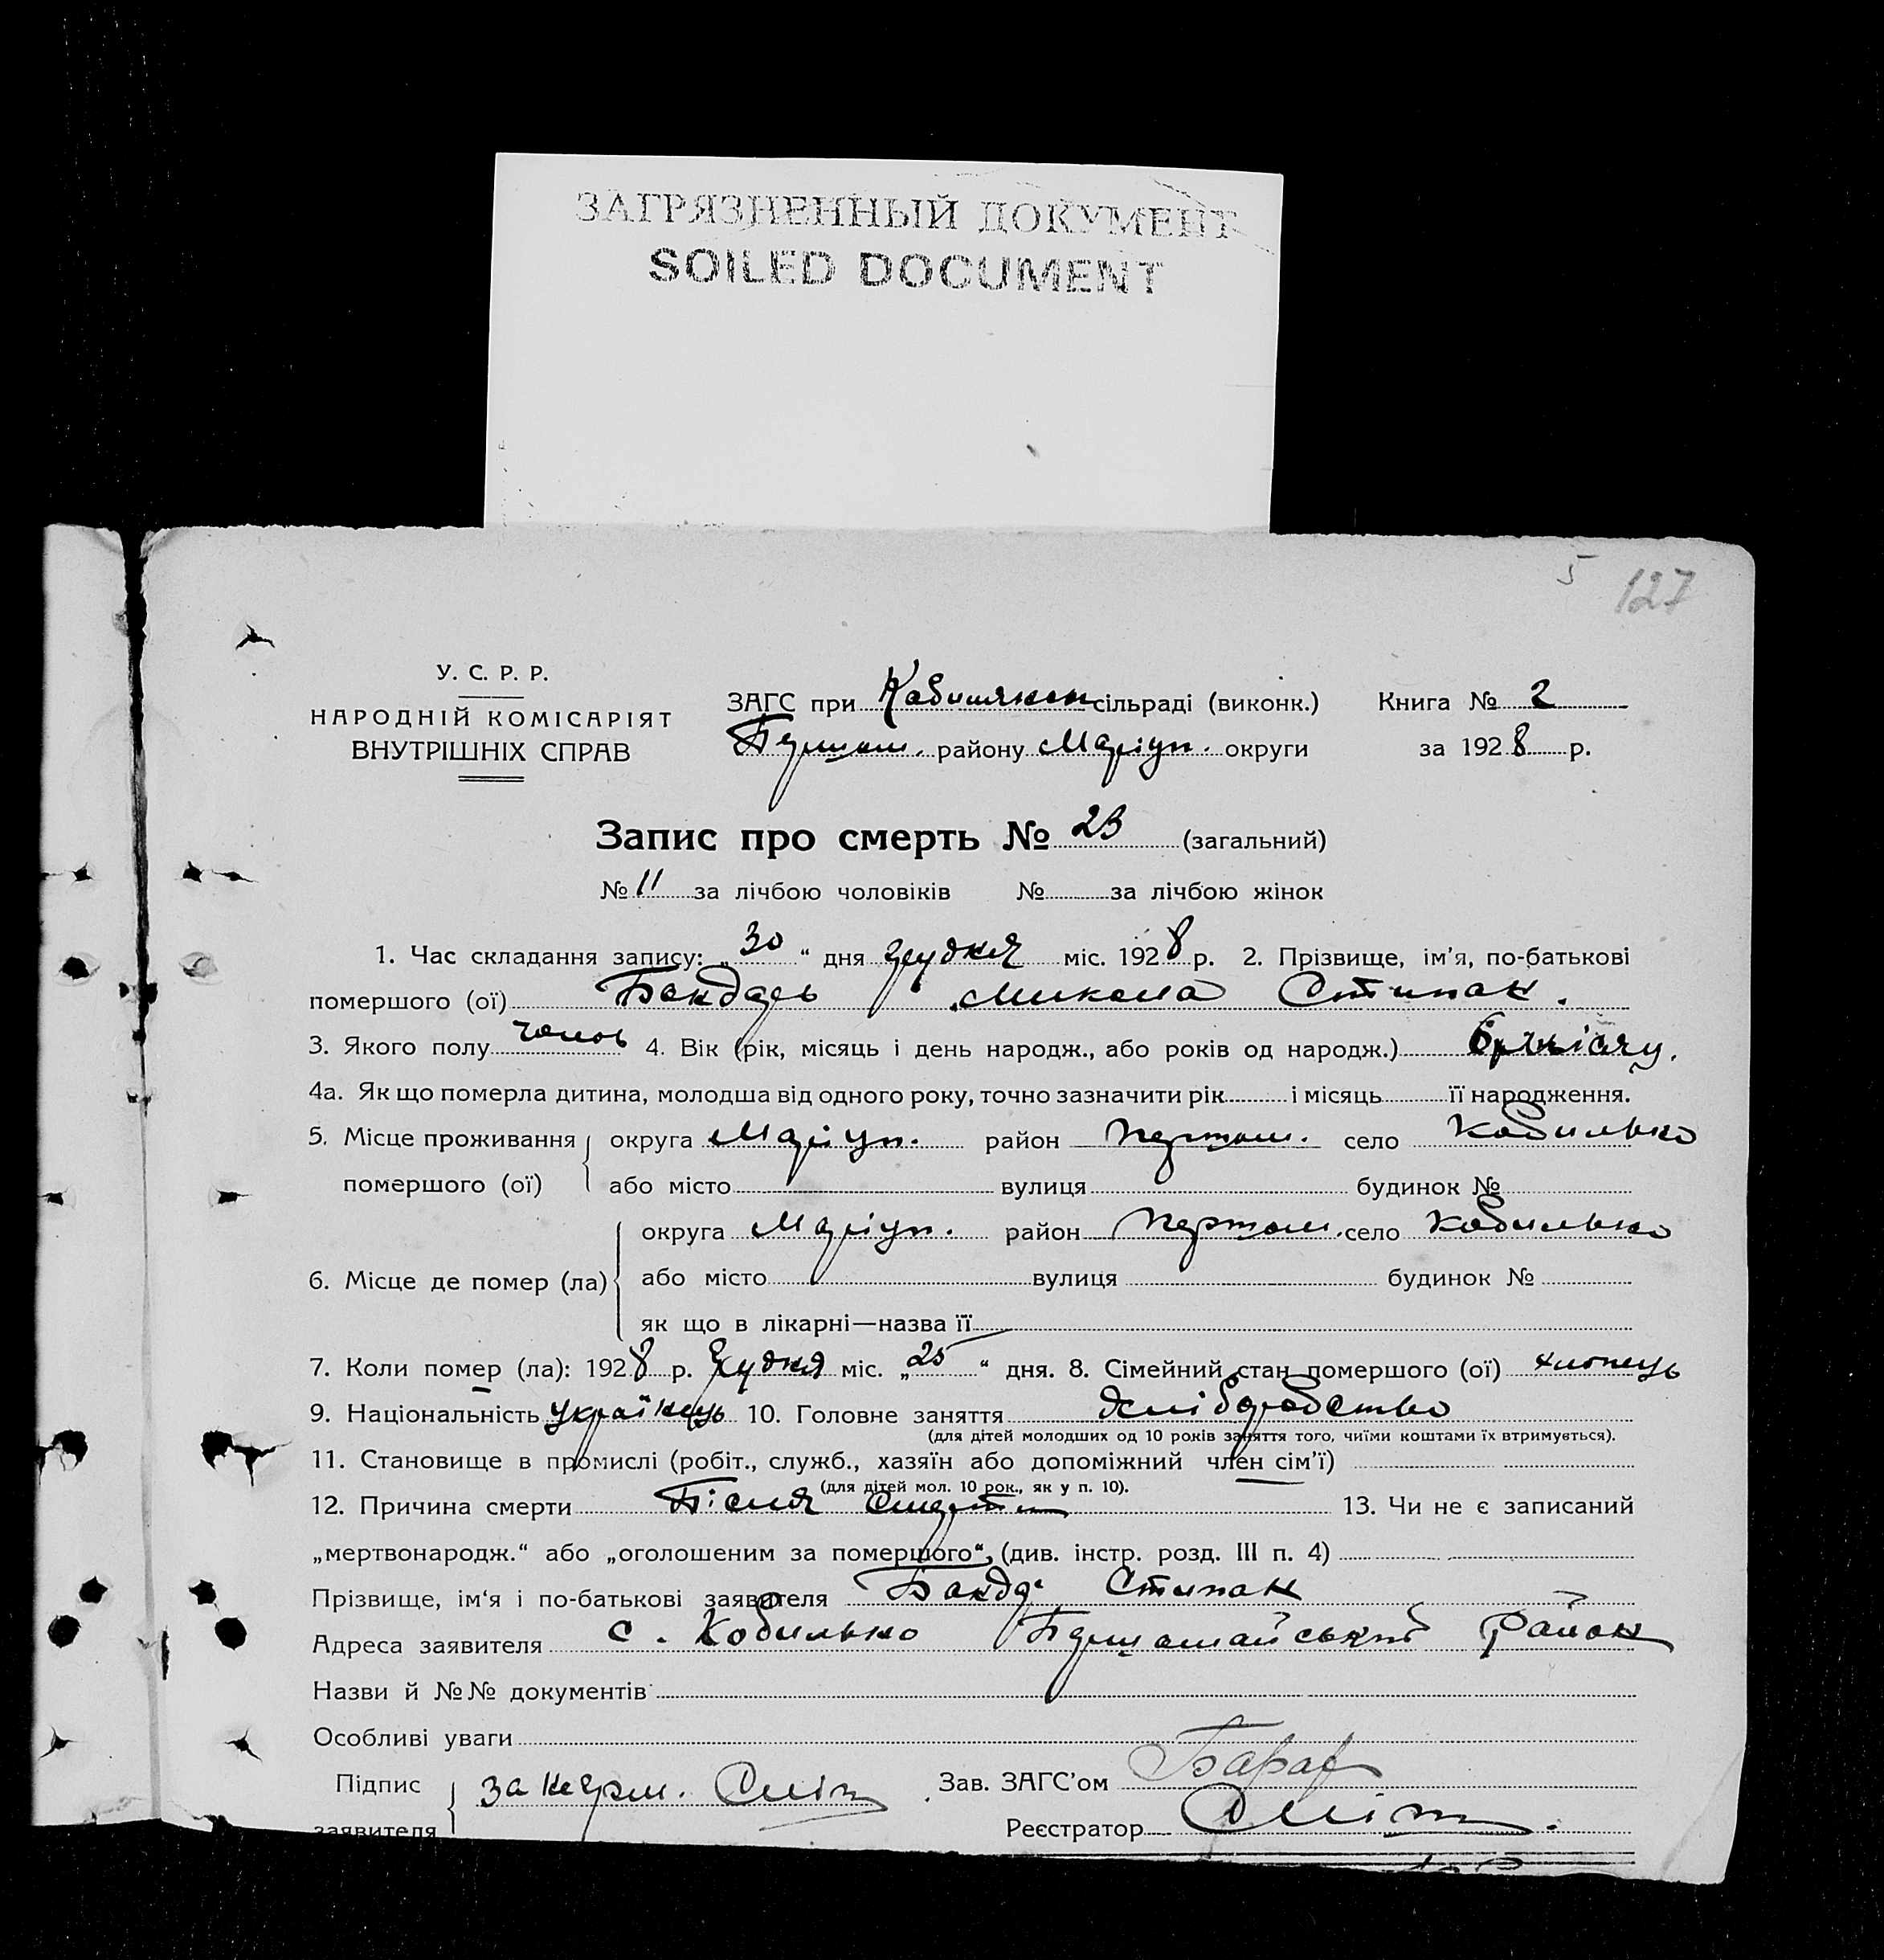 ЗАГРЯЗНЕННЫЙ ДОКУМЕНТ
SOILED DOCUMENT
5 127
У. С. Р. Р.
НАРОДНІЙ КОМІСАРІЯТ
ВНУТРІШНІХ СПРАВ
ЗАГС при сільраді (виконк.) Книга № 2
району Маріуп. округи за 1928 р.
Запис про смерть № 23 (загальний)
№ 11 за лічбою чоловіків № за лічбою жінок
1. Час складання запису: „30“ дня грудня міс. 1928 р. 2. Прізвище, ім'я, по-батькові
помершого (ої) Бондарь Микола Стипан.
3. Якого полу чолов 4. Вік (рік, місяць і день народж., або років од народж.)
4а. Як що померла дитина, молодша від одного року, точно зазначити рік і місяць її народження.
5. Місце проживання округа Маріуп. район село
помершого (ої) або місто вулиця будинок №
округа Маріуп. район село
6. Місце де помер (ла) або місто вулиця будинок №
як що в лікарні—назва її
7. Коли помер (ла): 1928 р. Грудня міс. „25“ дня. 8. Сімейний стан помершого (ої) хлопець
9. Національність українець 10. Головне заняття хліборобство
(для дітей молодших од 10 років заняття того, чиїми коштами їх втримується).
11. Становище в промислі (робіт., служб., хазяїн або допоміжний член сім'ї)
(для дітей мол. 10 рок., як у п. 10).
12. Причина смерти Після смерти 13. Чи не є записаний
„мертвонародж.“ або „оголошеним за помершого“, (див. інстр. розд. III п. 4)
Прізвище, ім'я і по-батькові заявителя Бонда Стипан
Адреса заявителя с. район
Назви й №№ документів
Особливі уваги
Підпис за негрм. Зав. ЗАГС'ом
заявителя Реєстратор